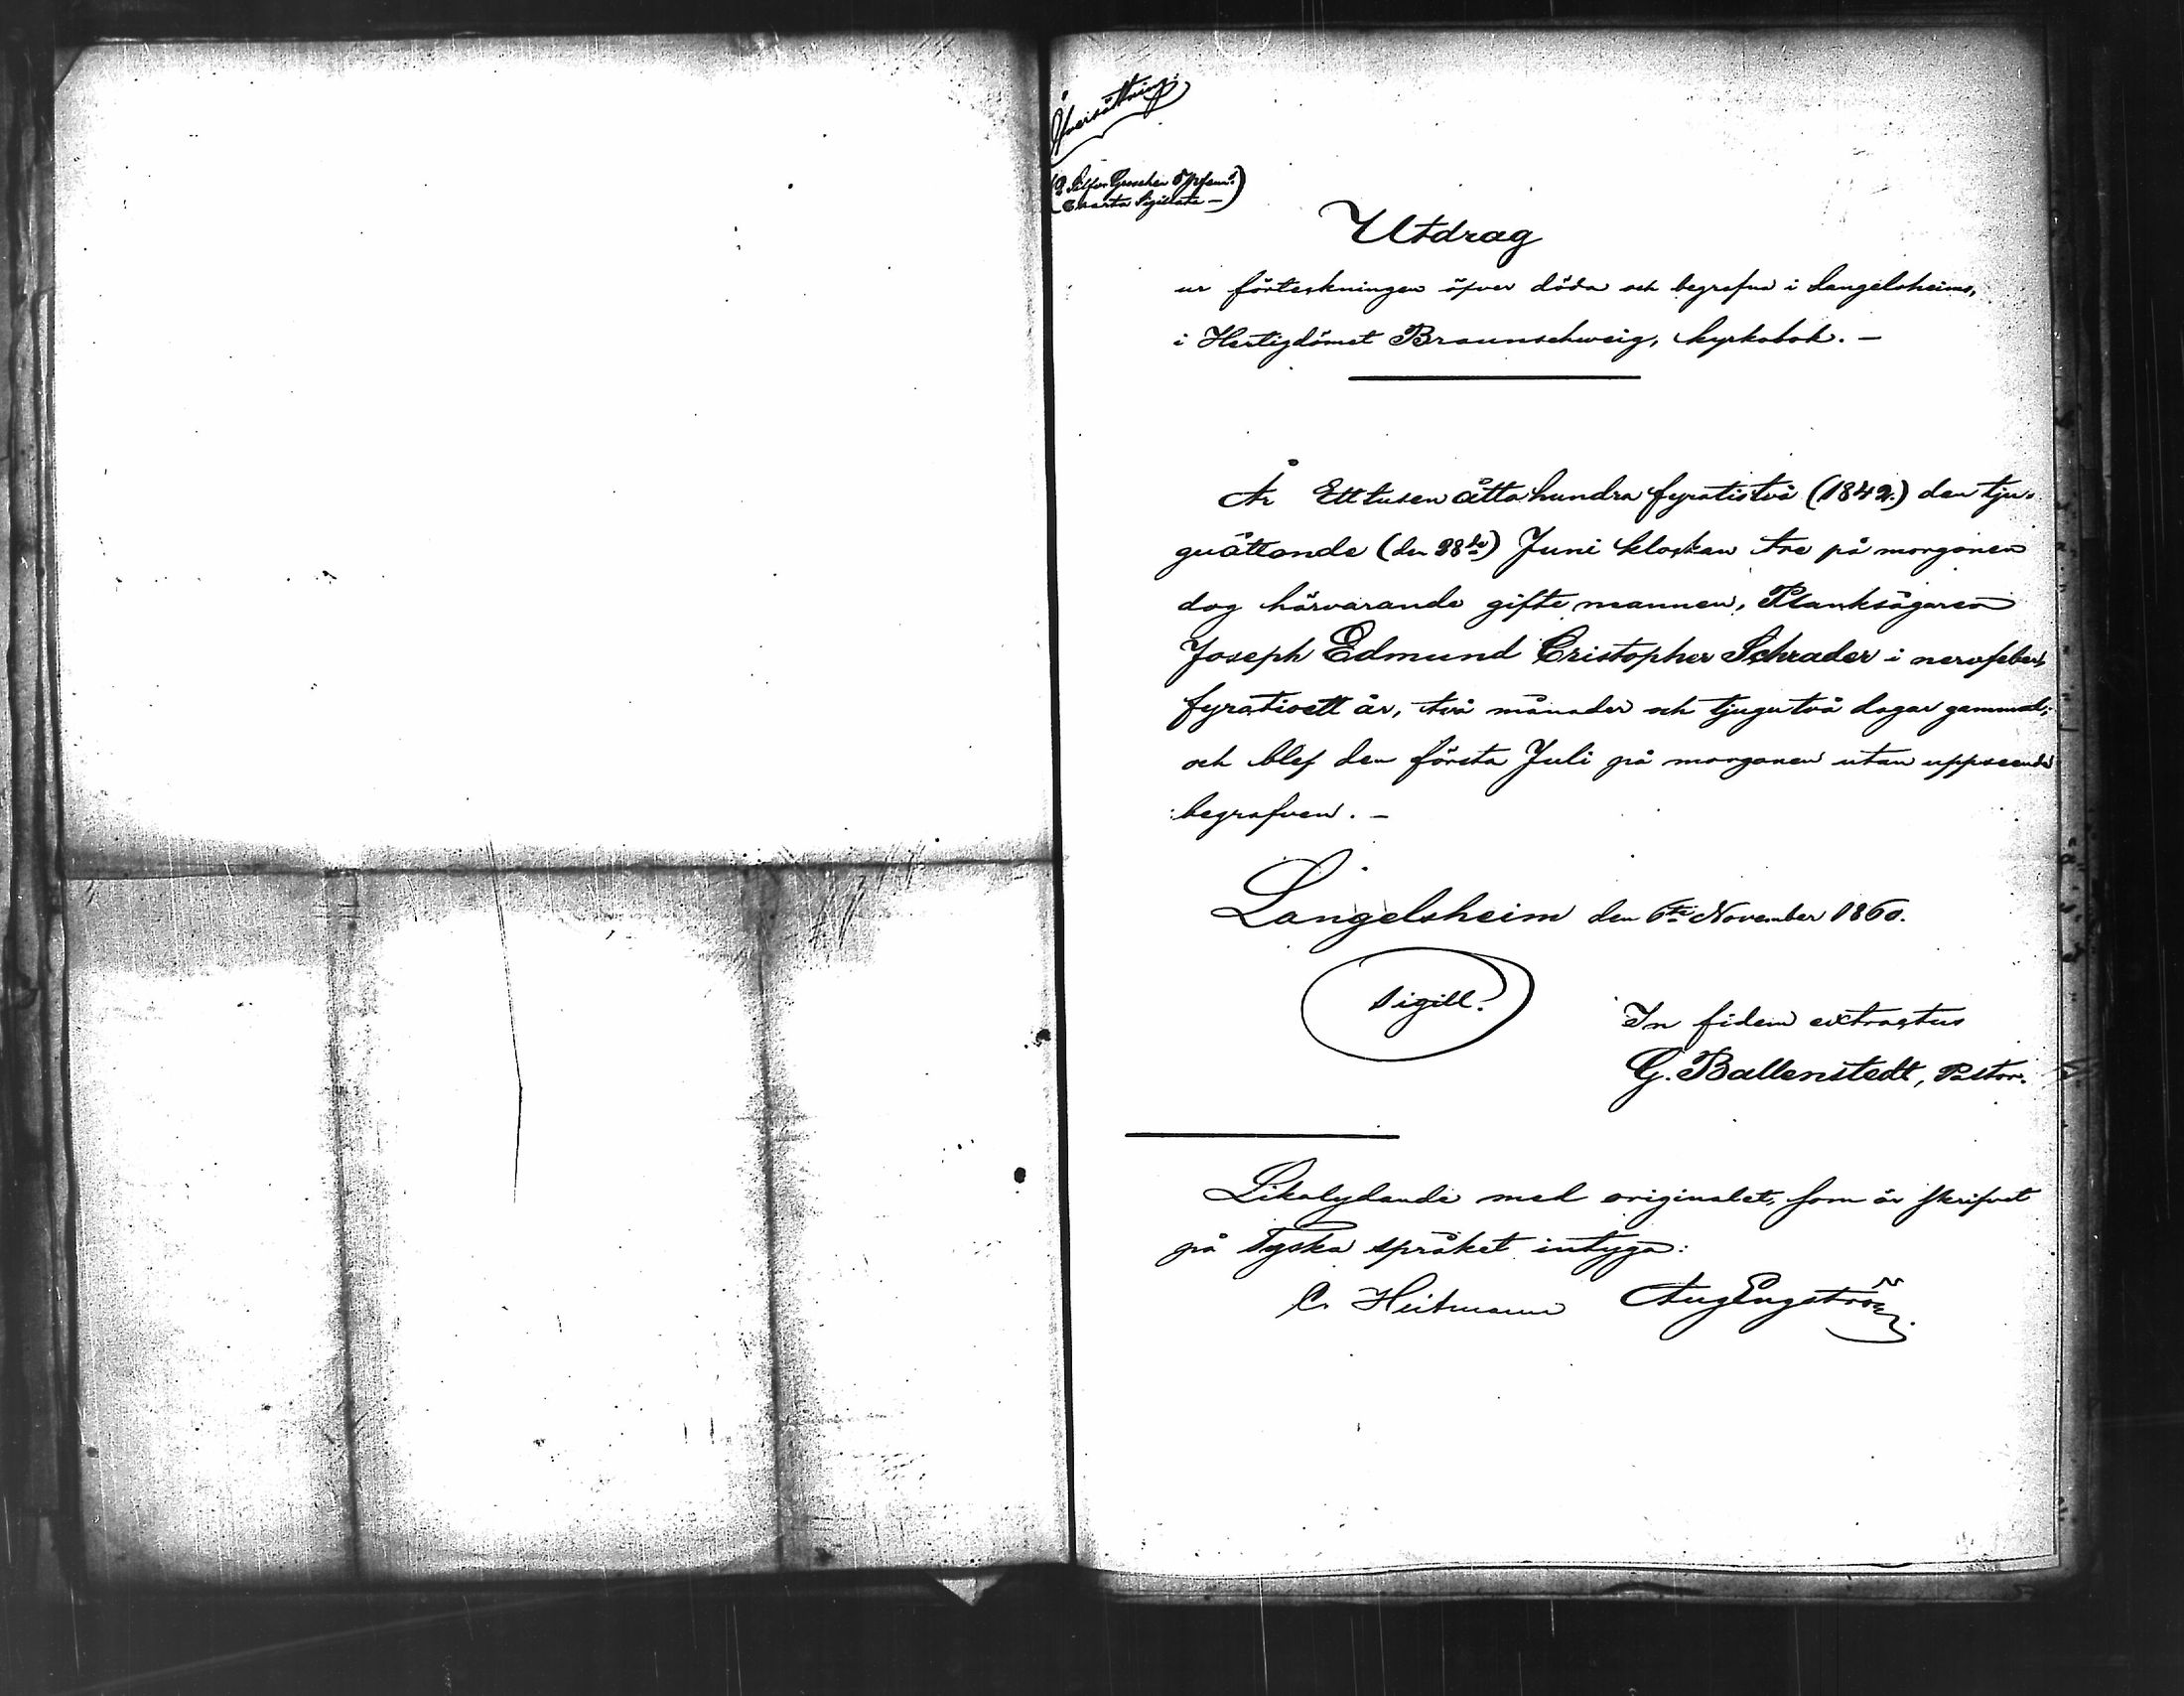 Öfversättning
(2 Silfver Groschen 6 pfenn:
Charta Sigillata —)
Utdrag
ur förteckningen öfver döda och begrafna i Langelsheims,
i Hertigdömet Braunschweig, kyrkobok. —
År Ett tusen åtta hundra fyratiotvå (1842.) den tju-
guåttonde (den 28de) Juni klockan tre på morgonen
dog härvarande gifte mannen, Planksågaren
Joseph Edmund Cristopher Schrader i nervfeber,
fyratioett år, två månader och tjugutvå dagar gammal;
och blef den första Juli på morgonen utan uppseende
begrafven. —
Langelsheim den 6te November 1860.
Sigill.
In fidem extractus
G. Ballenstedt, Pastor.
Likalydande med originalet, som är skrifvet
på Tyska språket intyga:
C. Heitmann Aug Engström